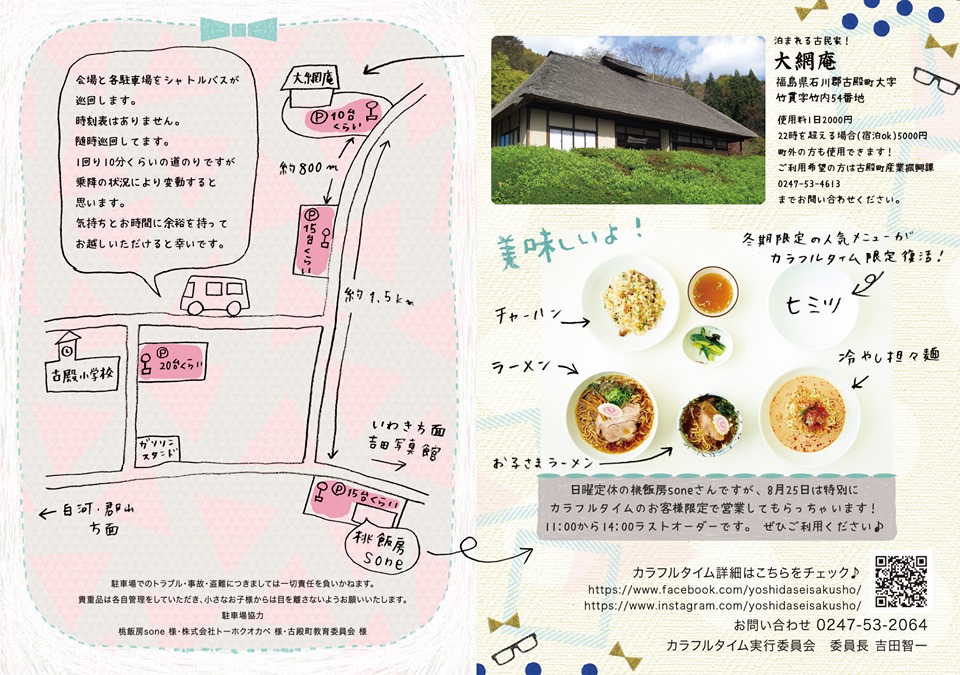 会場と各駐車場をシャトルバスが
巡回します。
時刻表はありません。
随時巡回してます。
1回り10分くらいの道のりですが
乗降の状況により変動すると
思います。
気持ちとお時間に余裕を持って
お越しいただけると幸いです。
大網庵
P 10台
くらい
約800m
P
15台くらい
約1.5km
古殿小学校
P
20台くらい
ガソリン
スタンド
いわき方面
吉田写真館
白河・郡山
方面
P 15台くらい
桃飯房
sone
駐車場でのトラブル・事故・盗難につきましては一切責任を負いかねます。
貴重品は各自管理をしていただき、小さなお子様からは目を離さないようお願いいたします。
駐車場協力
桃飯房sone 様・株式会社トーホクオカベ 様・古殿町教育委員会 様
泊まれる古民家!
大網庵
福島県石川郡古殿町大字
竹貫字竹内54番地
使用料1日2000円
22時を超える場合(宿泊ok)5000円
町外の方も使用できます!
ご利用希望の方は古殿町産業振興課
0247-53-4613
までお問い合わせください。
美味しいよ!
冬期限定の人気メニューが
カラフルタイム限定復活!
チャーハン
ヒミツ
ラーメン
冷やし担々麺
お子さまラーメン
日曜定休の桃飯房soneさんですが、8月25日は特別に
カラフルタイムのお客様限定で営業してもらっちゃいます!
11:00から14:00ラストオーダーです。 ぜひご利用ください♪
カラフルタイム詳細はこちらをチェック♪
https://www.facebook.com/yoshidaseisakusho/
https://www.instagram.com/yoshidaseisakusho/
お問い合わせ 0247-53-2064
カラフルタイム実行委員会 委員長 吉田智一